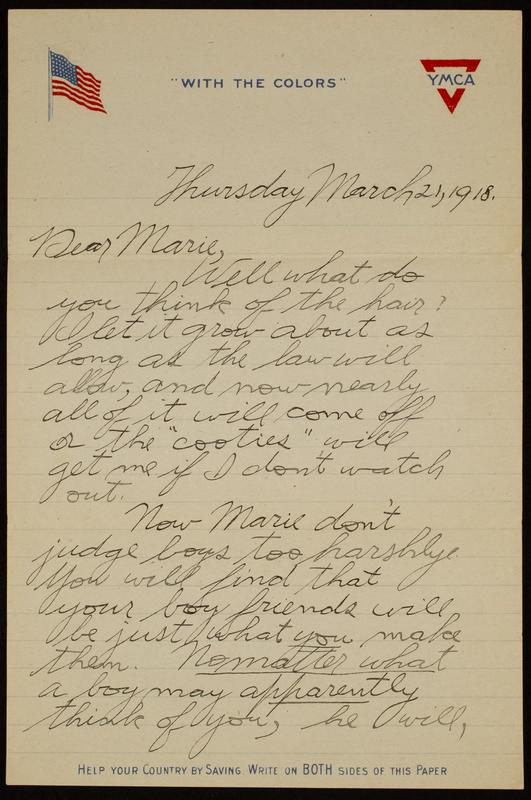 "WITH THE COLORS"
YMCA
Thursday March 21, 1918.
Dear Marie,
Well what do
you think of the hair?
I let it grow about as
long as the law will
allow, and now nearly
all of it will come off
or the "cooties" will
get me if I don't watch
out.
Now Marie don't
judge boys too harshlye.
You will find that
your boy friends will
be just what you make
them. No matter what
a boy may apparently
think of you, he will,
HELP YOUR COUNTRY BY SAVING. WRITE ON BOTH SIDES OF THIS PAPER